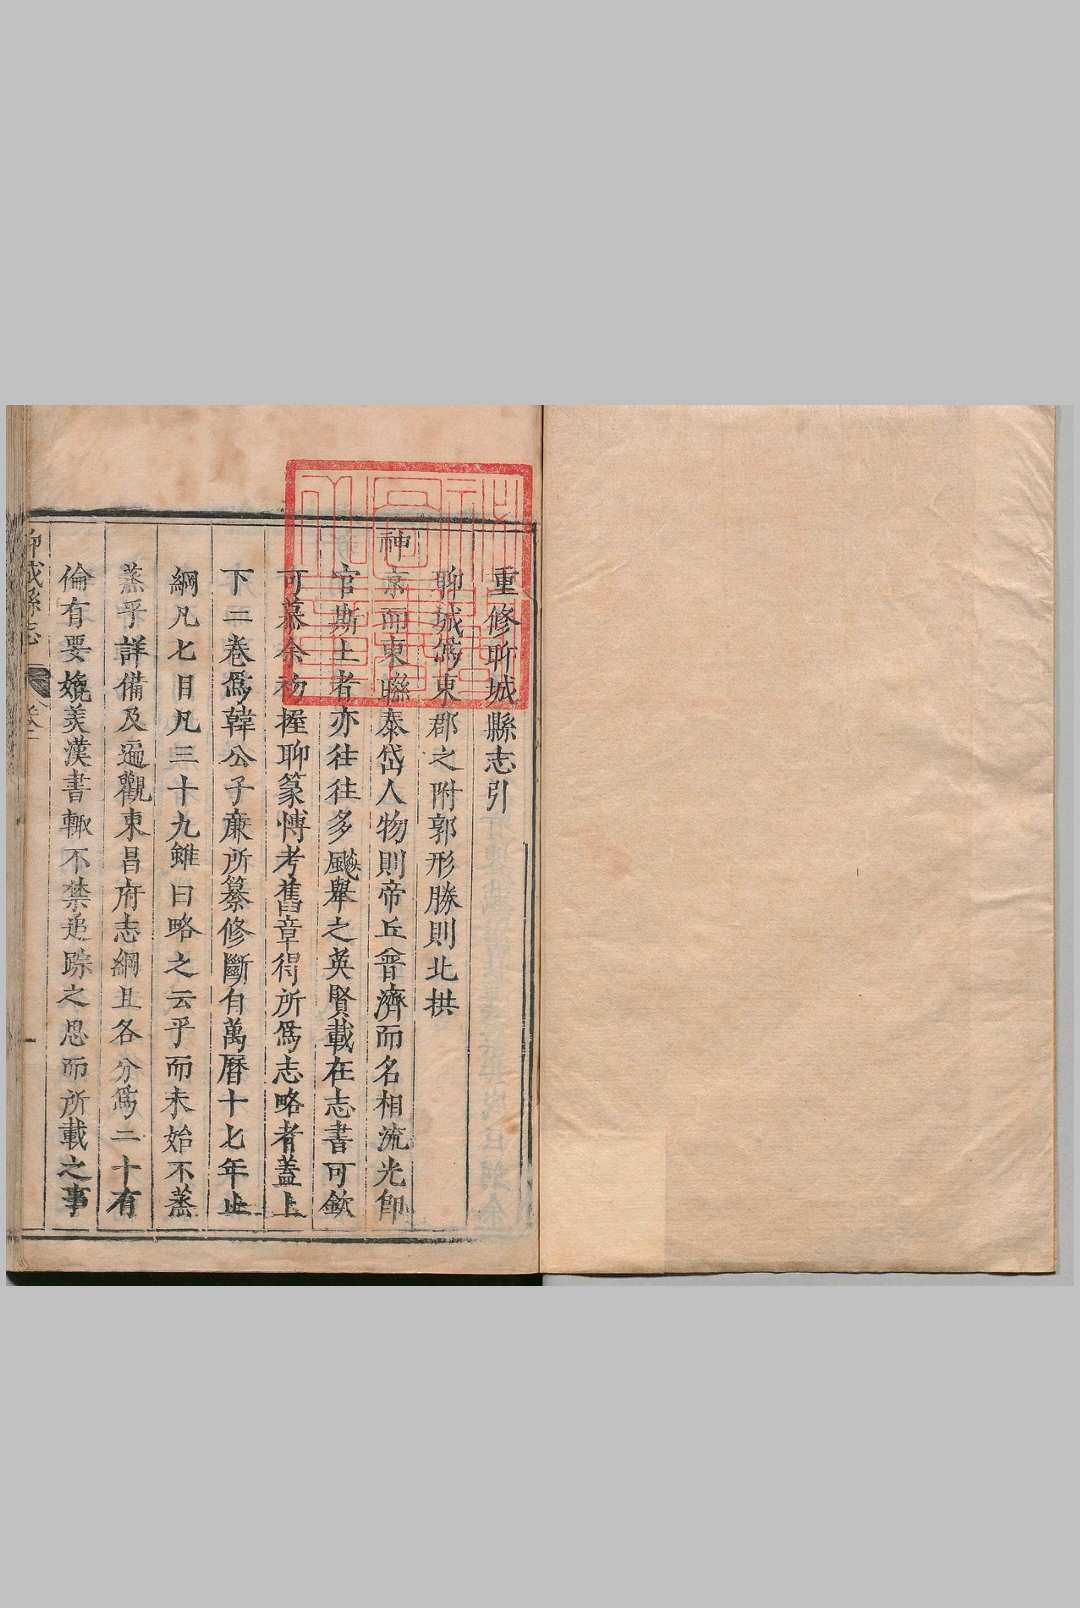 重修聊城縣志引
聊城爲東郡之附郭形勝則北拱
神京而東聯泰岱人物則帝丘晉濟而名相流光卽
官斯土者亦往往多颷舉之英賢載在志書可欽
可慕余初握聊篆愽考舊章得所爲志略者蓋上
下二卷爲韓公子亷所纂修斷自萬曆十七年止
綱凡七目凡三十九雖曰略之云乎而未始不蒸
蒸乎詳備及遍觀東昌府志綱且各分爲二十有
倫有要媲美漢書輙不禁追踪之思而所載之事
聊城縣志